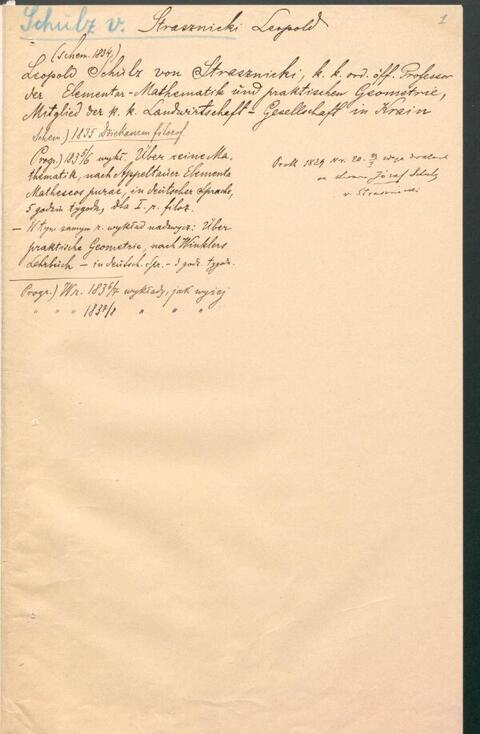 Schulz v. Strasznicki Leopold
1
(Schem. 1834.)
Leopold Schulz von Strasznicki, k. k. ord. öff. Professor
der Elementar-Mathematik und praktischen Geometrie,
Mitglied der k. k. Landwirtschaft-Gesellschaft in Krain
Schem.) 1835 dziekanem filozof.
Progr.) 1835/6 wykł. Über reine Ma-
thematik, nach Appeltauer Elementa
Matheseos purae, in deutscher Sprache,
5 godzin tygodn., dla I. r. filoz.
— W tym samym r. wykład nadzwycz: Über
praktische Geometrie, nach Winklers
Lehrbuch — in deutsch. Spr. - 3 godz. tygodn.
Progr.) W r. 1836/7 wykłady, jak wyżej
" " " 1837/8 " " "
Prot. 1829 Nr. 20.
Józef Schulz
v. Strasznicki